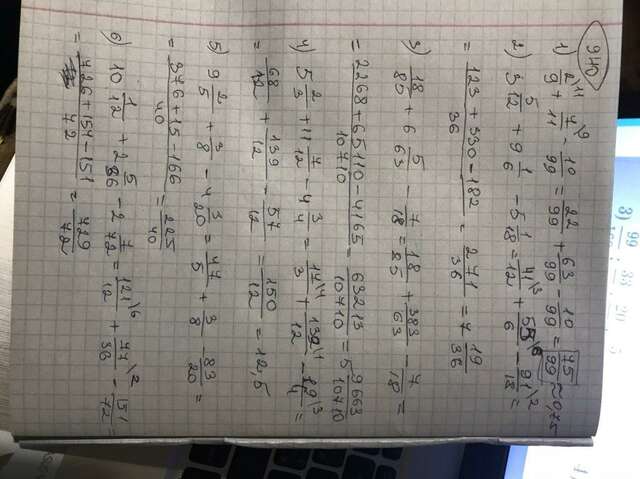 940
1) 2\11/9 + 7\9/11 - 10/99 = 22/99 + 63/99 - 10/99 = 75/99 ≈ 0,75
2) 3 5/12 + 9 1/6 - 5 1/18 = 41\3/12 + 55\6/6 - 91\2/18 =
= 123 + 330 - 182/36 = 271/36 = 7 19/36
3) 18/85 + 6 5/63 - 7/18 = 18/85 + 383/63 - 7/18 =
= 2268 + 65110 - 4165/10710 = 63213/10710 = 5 9663/10710
4) 5 2/3 + 11 7/12 - 4 3/4 = 17\4/3 + 139\1/12 - 19\3/4 =
= 68/12 + 139/12 - 57/12 = 150/12 = 12,5
5) 9 2/5 + 3/8 - 4 3/20 = 47/5 + 3/8 - 83/20 =
= 376 + 15 - 166/40 = 225/40
6) 10 1/12 + 2 5/36 - 2 7/72 = 121\6/12 + 77\2/36 - 151/72 =
= 726 + 154 - 151/72 = 729/72
3) 99